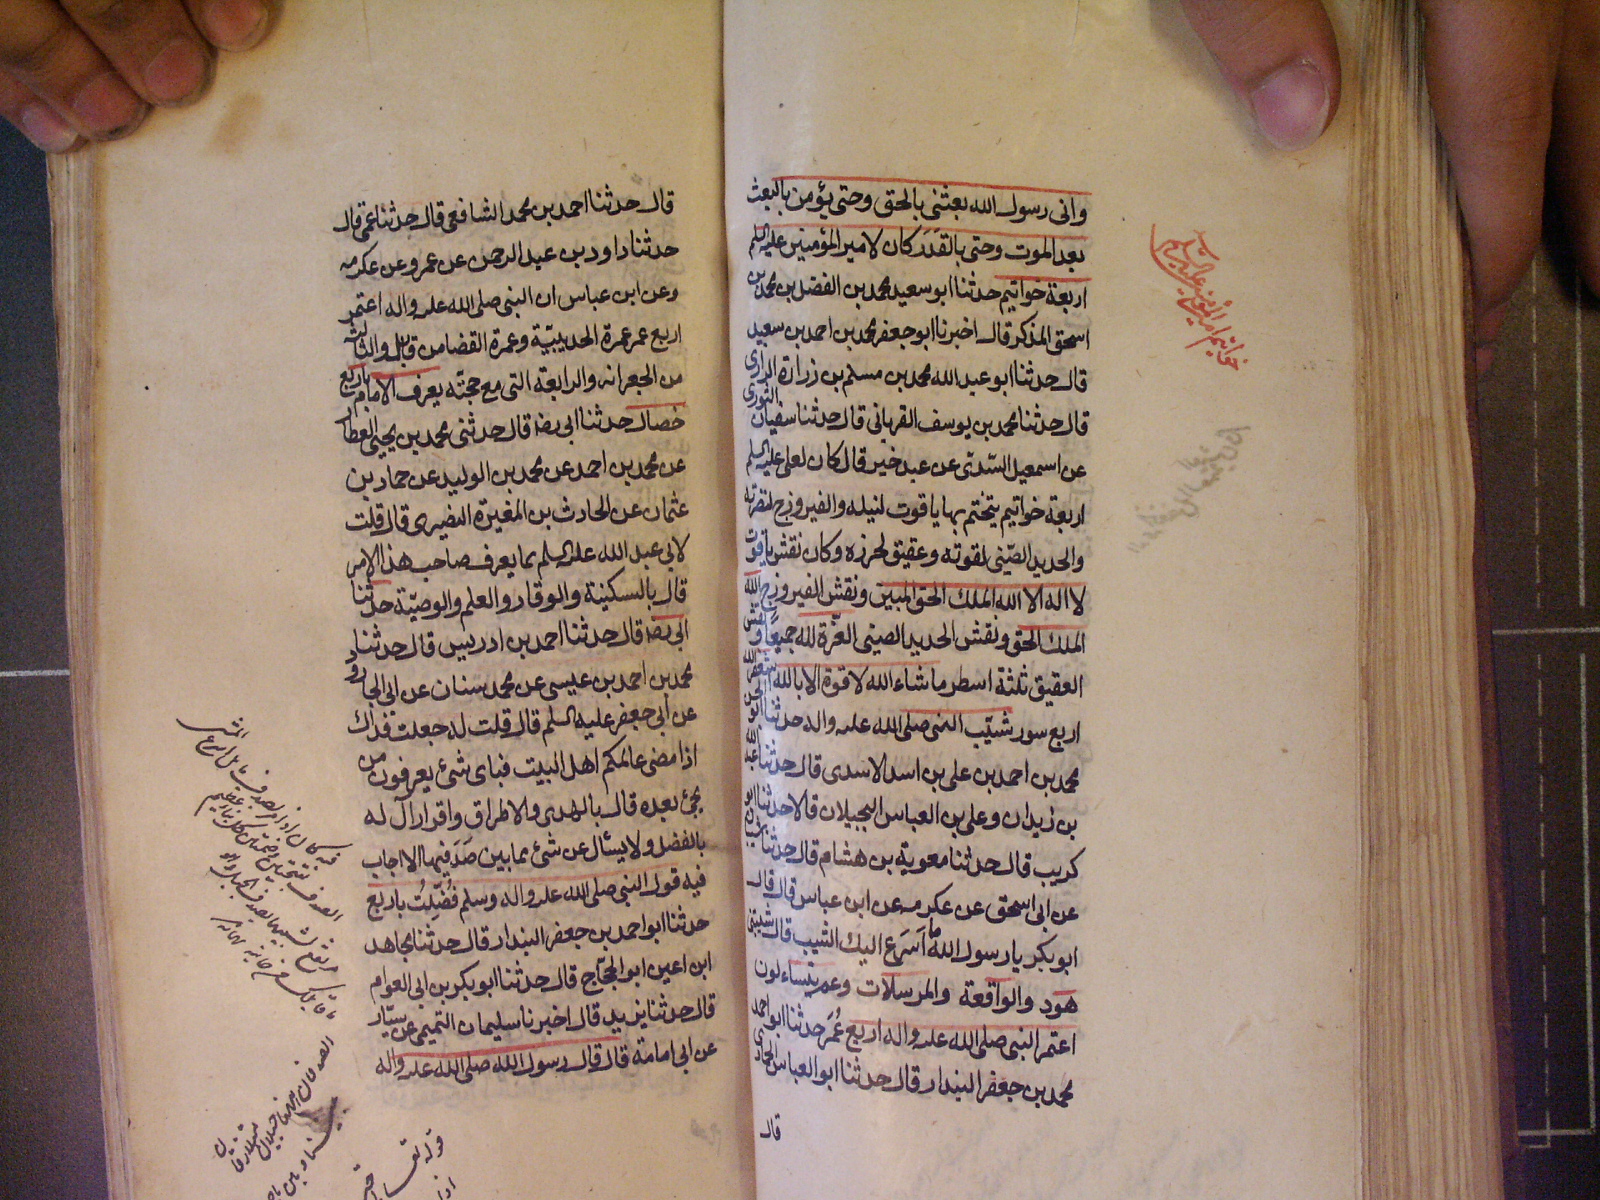 وانى رسول الله بعثنى بالحق وحتى يؤمن بالبعث
بعد الموت وحتى بالقدر كان لامير المؤمنين عليه السلم
اربعة خواتيم حدثنا ابو سعيد محمد بن الفضل بن محمد بن
اسحق المذكر قال اخبرنا ابو جعفر محمد بن احمد بن سعيد
قال حدثنا ابو عبد الله محمد بن مسلم بن زرارة الرازى
قال حدثنا محمد بن يوسف الفريانى قال حدثنا سفيان الثورى
عن اسمعيل السدى عن عبد خير قال كان لعلى عليه السلم
اربعة خواتيم يتختم بها ياقوت لنيله والفيروزج لنصرته
والحديد الصينى لقوته وعقيق لحرزه وكان نقش ياقوت
لا اله الا الله الملك الحق المبين ونقش الفيروزج الله
الملك الحق ونقش الحديد الصينى العزة لله جميعا ونقش
العقيق ثلثة اسطر ما شاء الله لا قوة الا بالله استغفر الله
اربع سور شيب النبى صلى الله عليه واله حدثنا ابو الحسن
محمد بن احمد بن على بن اسد الاسدى قال حدثنا عبد الله
بن زيدان وعلى بن العباس البجبلان قالا حدثنا ابو
كريب قال حدثنا معوية بن هشام قال حدثنا شيبان
عن ابى اسحق عن عكرمه عن ابن عباس قال قال
ابو بكر يا رسول الله ما اسرع اليك الشيب قال شيبتنى
هود والواقعة والمرسلات وعم يتساءلون
اعتمر النبى صلى الله عليه واله اربع عمر حدثنا ابو احمد
محمد بن جعفر البندار قال حدثنا ابو العباس الحمادى
قال
خواتيم امير المؤمنين عليه السلم
قال حدثنا احمد بن محمد الشافعى قال حدثنا عمى قال
حدثنا داود بن عبد الرحمن عن عمرو عن عكرمه
وعن ابن عباس ان النبى صلى الله عليه واله اعتمر
اربع عمر عمرة الحديبية وعمرة القضا من قابل والثالثة
من الجعرانه والرابعة التى مع حجته يعرف الامام باربع
خصال حدثنا ابى رضه قال حدثنى محمد بن يحيى العطار
عن محمد بن احمد عن محمد بن الوليد عن حماد بن
عثمان عن الحارث بن المغيرة النضيرى قال قلت
لابى عبد الله عليه السلم بما يعرف صاحب هذا الامر
قال بالسكينة والوقار والعلم والوصية حدثنا
ابى رضه قال حدثنا احمد بن ادريس قال حدثنا
محمد بن احمد بن عيسى عن محمد سنان عن ابى الجارود
عن ابى جعفر عليه السلم قال قلت له جعلت فداك
اذا مضى عالمكم اهل البيت فباى شئ يعرفون من
يجئ بعده قال بالهدى والاطراق واقرار آل له
بالفضل ولا يسئال عن شئ مما بين صدفيها الا اجاب
فيه قول النبى صلى الله عليه واله وسلم فضلت باربع
حدثنا ابو احمد بن جعفر البندار قال حدثنا مجاهد
ابن اعين ابو الحجاج قال حدثنا ابو بكر بن ابى العوام
قال حدثنا يزيد قال اخبرنا سليمان التميمى عن سيار
عن ابى امامة قال قال رسول الله صلى الله عليه واله